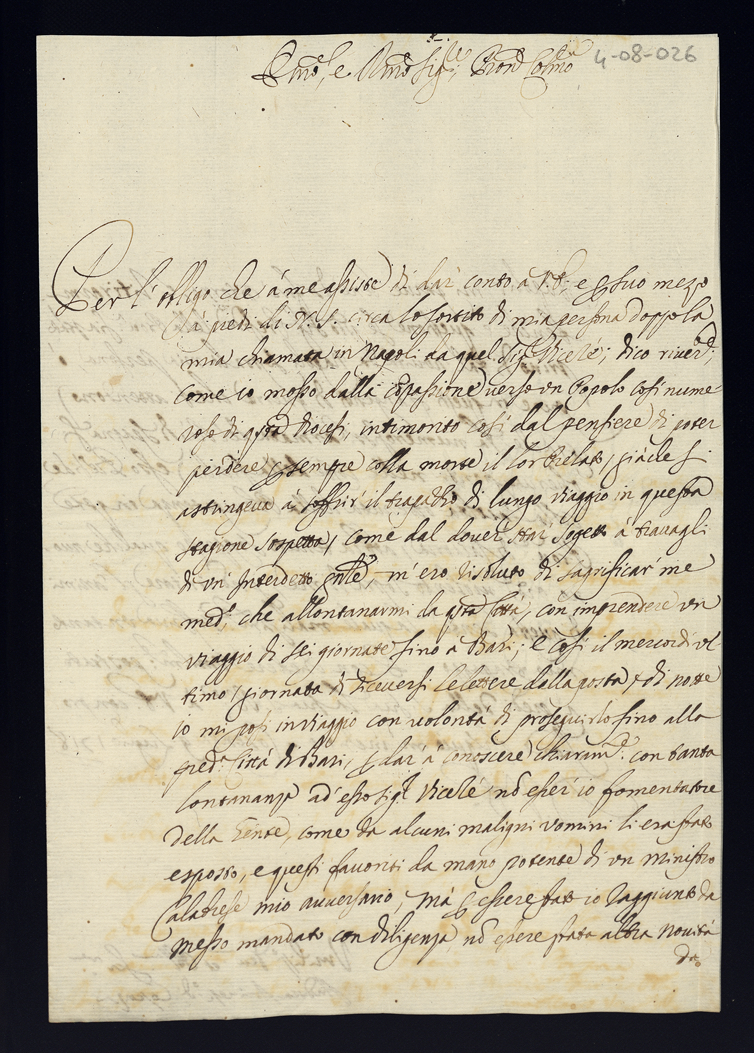 Em.o, e Rmo Sig.re, Pron Colmo
4-08-026
Per l'obligo che à me assiste di dar conto a V.E. e p suo mezzo
à piedi di N.S. circa lo sortito di mia persona doppo la
mia chiamata in Napoli da quel Sig.r Vicerè; dico river.
come io mosso dalla cōpassione verso un Popolo così nume-
roso di qsta diocesi, intimorito così dal pensiere di poter
perdere p sempre colla morte il lor Prelato, giache si
astringeva à soffrir il strapazzo di lungo viaggio in questa
stagione sospetta, come dal dover star sogetto à travagli
di un Interdetto gnle, m'ero risoluto di sagrificar me
med.o, che allontanarmi da qsta Città, con imprendere un
viaggio di sei giornate sino a Bari; e così il mercordì ul-
timo, giornata di riceversi le lettere dalla posta, di notte
io mi posi in viaggio con volontà di proseguirlo sino alla
pred.a Città di Bari, p dar' à conoscere chiaram.e con tanta
lontananza ad esso Sig.r Vicerè nō esser io fomentatore
della Gente, come da alcuni maligni uomini li era stato
esposto, e questi favoriti da mano potente di un ministro
Calabrese mio avversario; Mà p essere stato io raggiunto da
messo mandato con diligenza nō essere stata altra novità
da